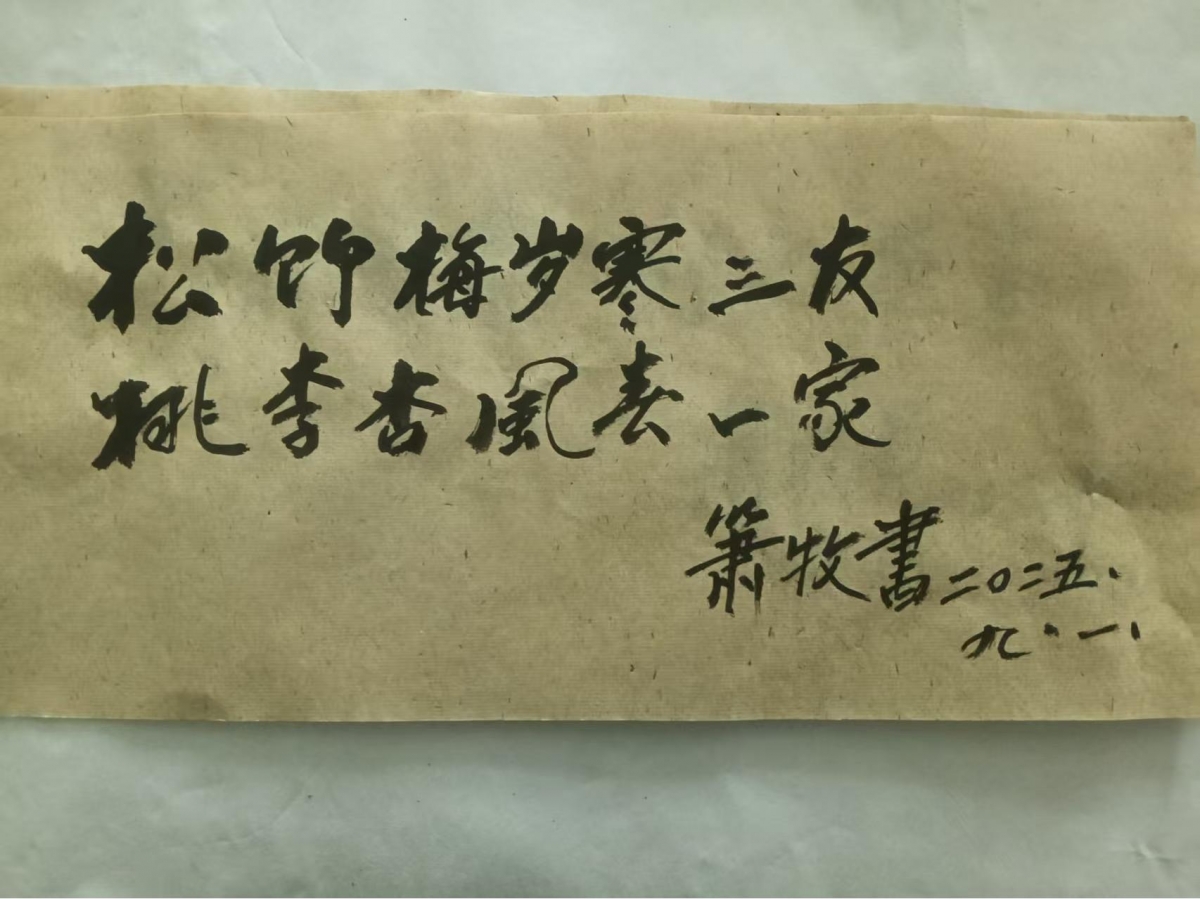 松竹梅岁寒三友
桃李杏風春一家
箫牧書二〇二五.
九.一.